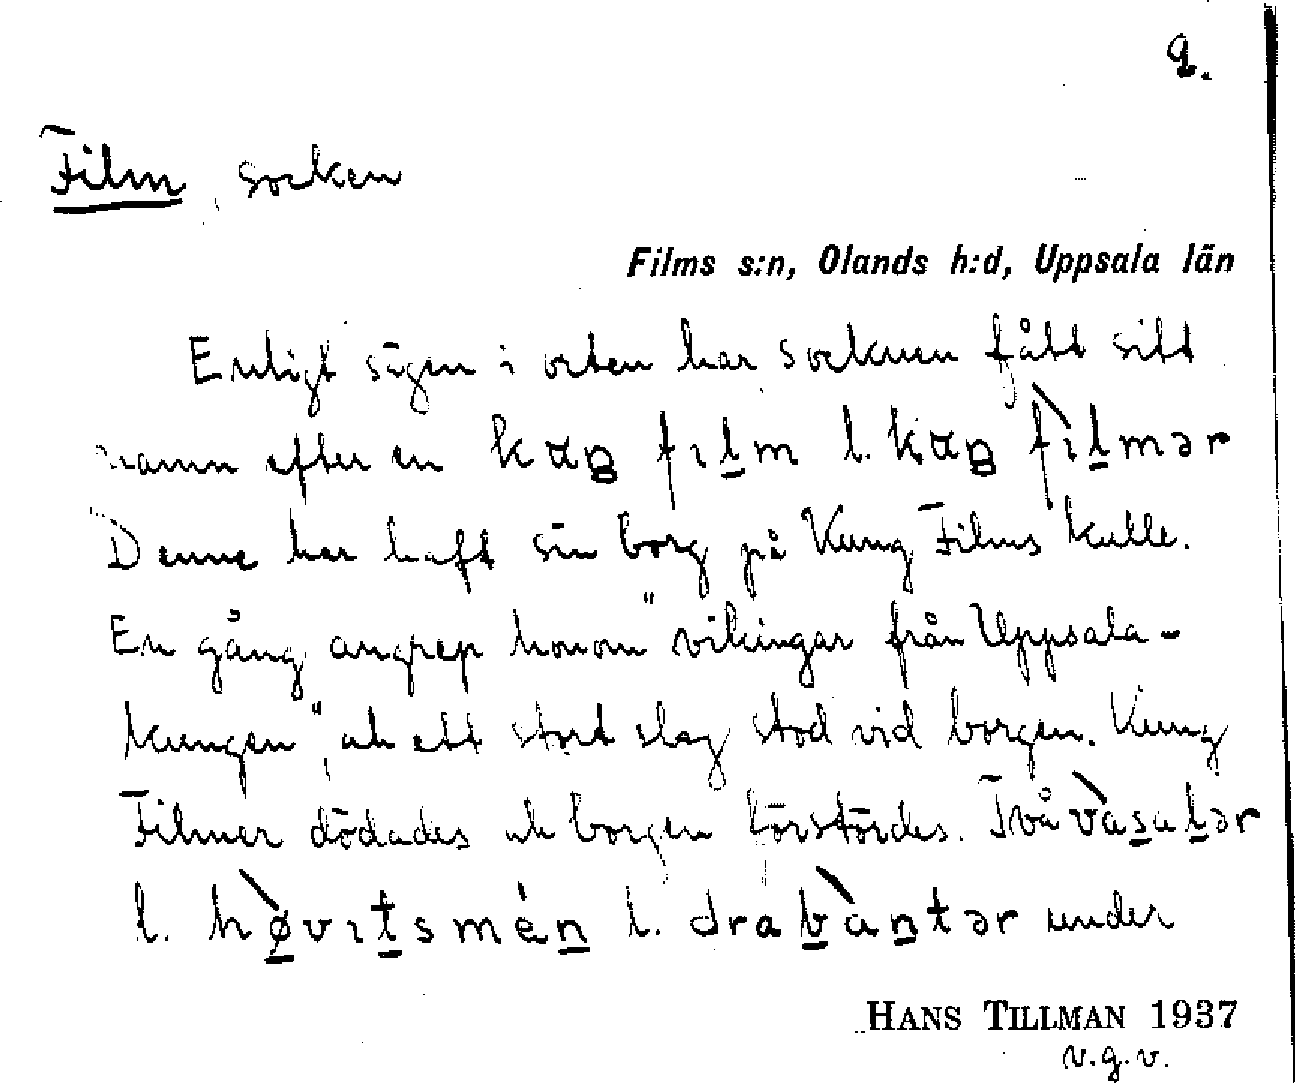 2.
Film, socken
Films s:n, Olands h:d, Uppsala län
Enligt sägen i orten har socknen fått sitt
namn efter en kaŋ film l. kaŋ filmər
Denne har haft sin borg på Kung Films kulle.
En gång angrep honom "vikingar från Uppsala-
kungen", och ett stort slag stod vid borgen. Kung
Filmer dödades och borgen förstördes. Två vàsalər
l. hø̀vitsmén l. drabàntər under
HANS TILLMAN 1937
v.g.v.